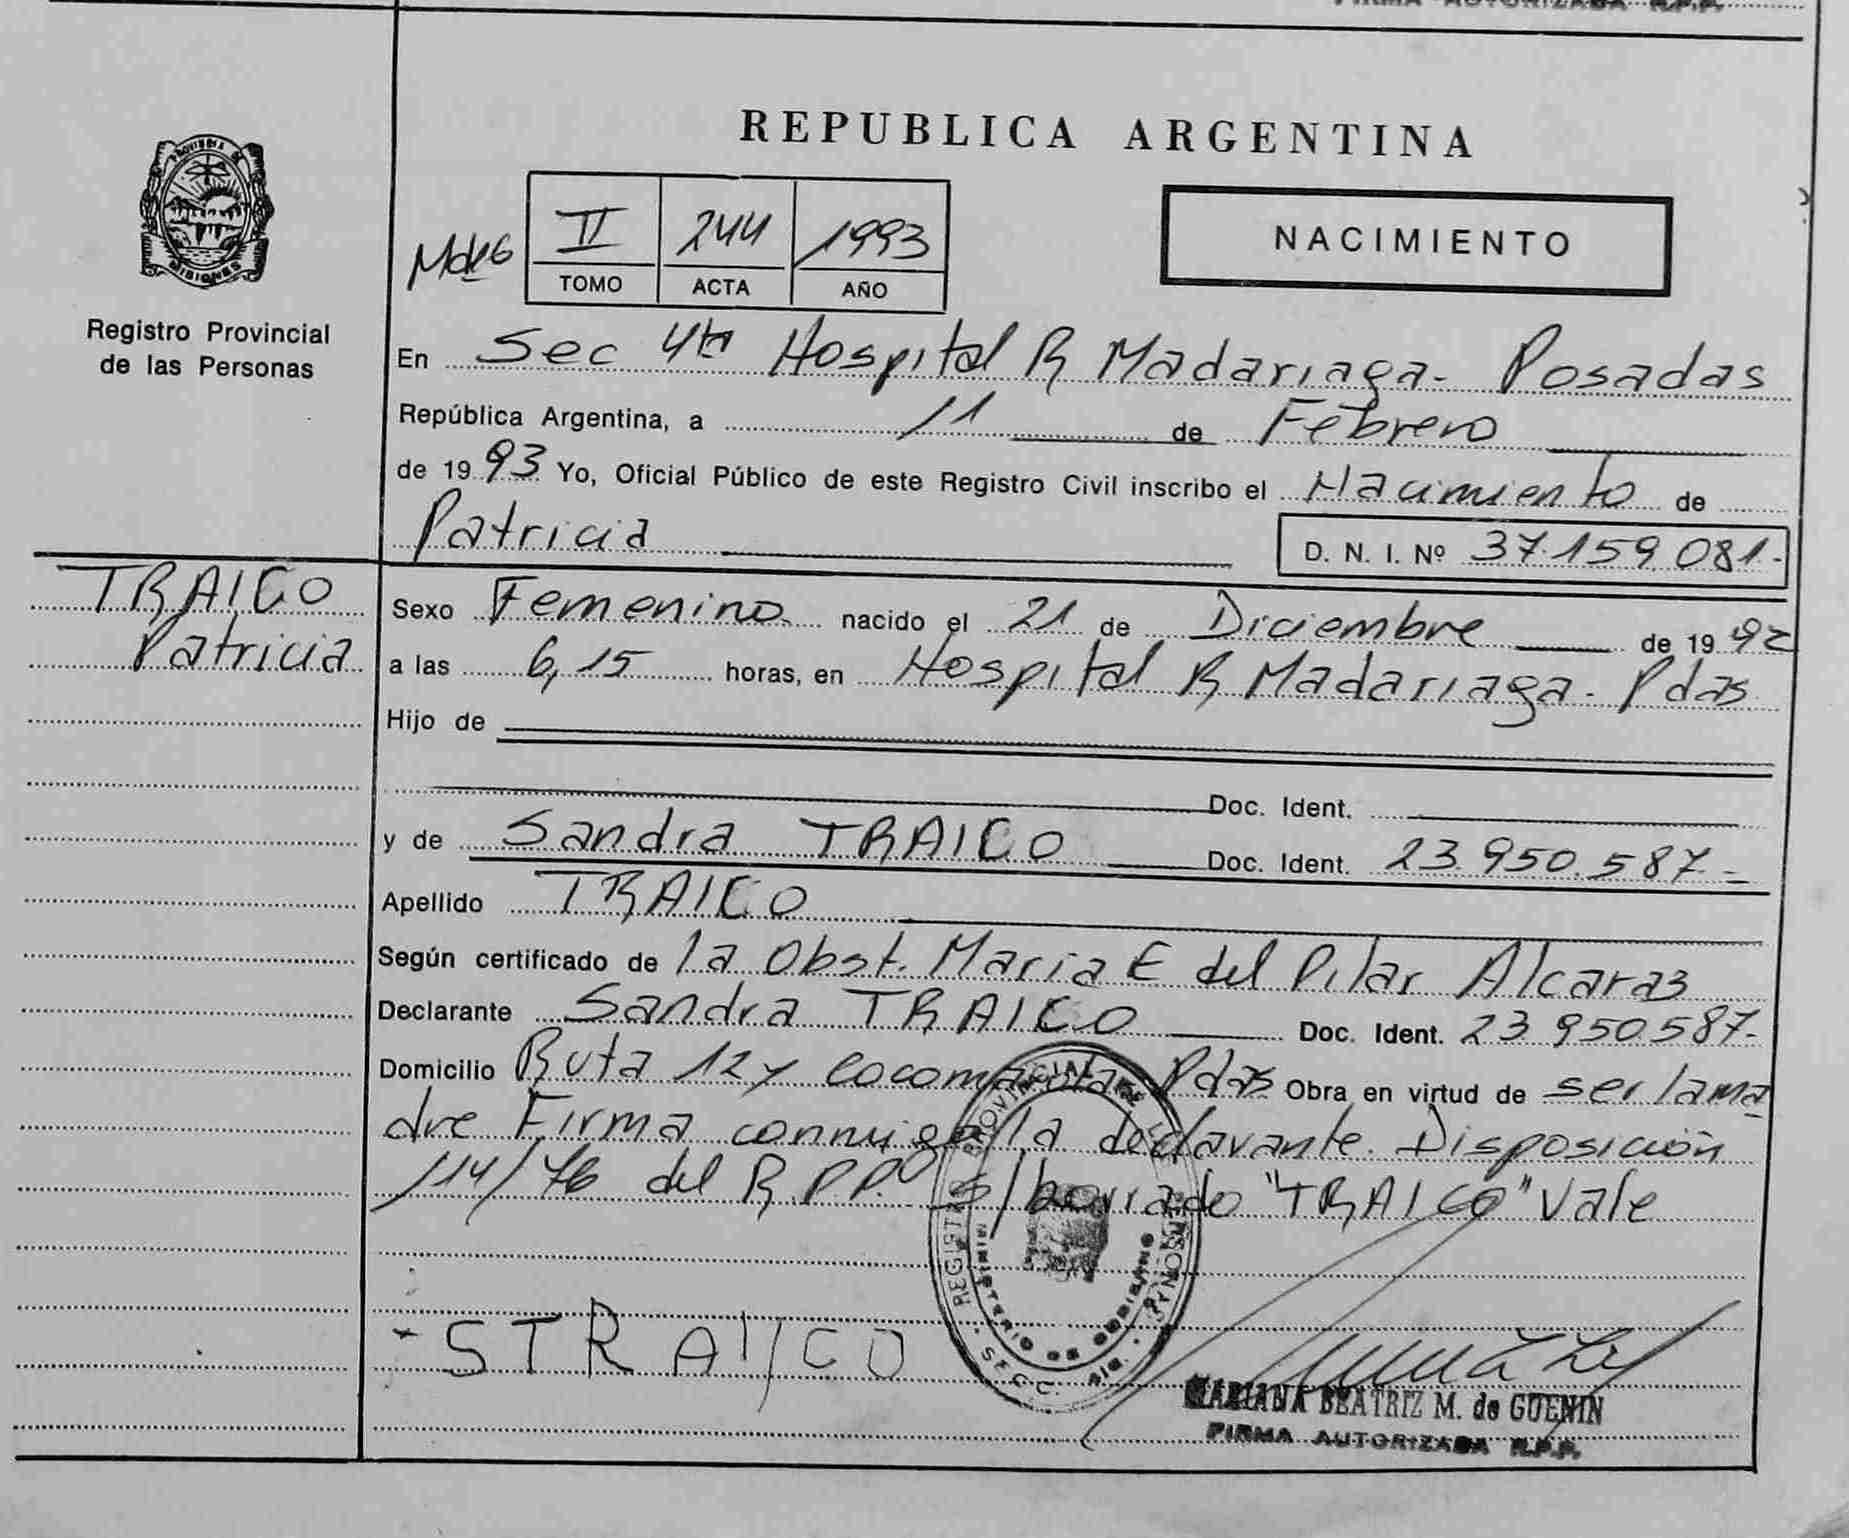 FIRMA AUTORIZADA R.P.P.
REPUBLICA ARGENTINA
PROVINCIA DE
MISIONES
Registro Provincial
de las Personas
II 244 1993
TOMO ACTA AÑO
NACIMIENTO
En Sec 4ta Hospital R Madariaga - Posadas
República Argentina, a 11 de Febrero
de 1993 Yo, Oficial Público de este Registro Civil inscribo el Nacimiento de
Patricia D. N. I. Nº 37.159.081.-
TRAICO
Patricia
Sexo Femenino nacido el 21 de Diciembre de 1992
a las 6,15 horas, en Hospital R Madariaga - Pdas
Hijo de
Doc. Ident.
y de Sandra TRAICO Doc. Ident. 23.950.587.-
Apellido TRAICO
Según certificado de la Obst. Maria E del Pilar Alcaraz
Declarante Sandra TRAICO Doc. Ident. 23.950.587.-
Domicilio Ruta 12 y Cocomarola Pdas Obra en virtud de ser la ma
dre Firma conmigo la declarante. Disposición
114/76 del R.P.P. s/borrado "TRAICO" Vale
STRAICO
REGISTRO PROVINCIAL DE LAS PERSONAS
MINISTERIO DE GOBIERNO
MARIANA BEATRIZ M. de GUENIN
FIRMA AUTORIZADA R.P.P.